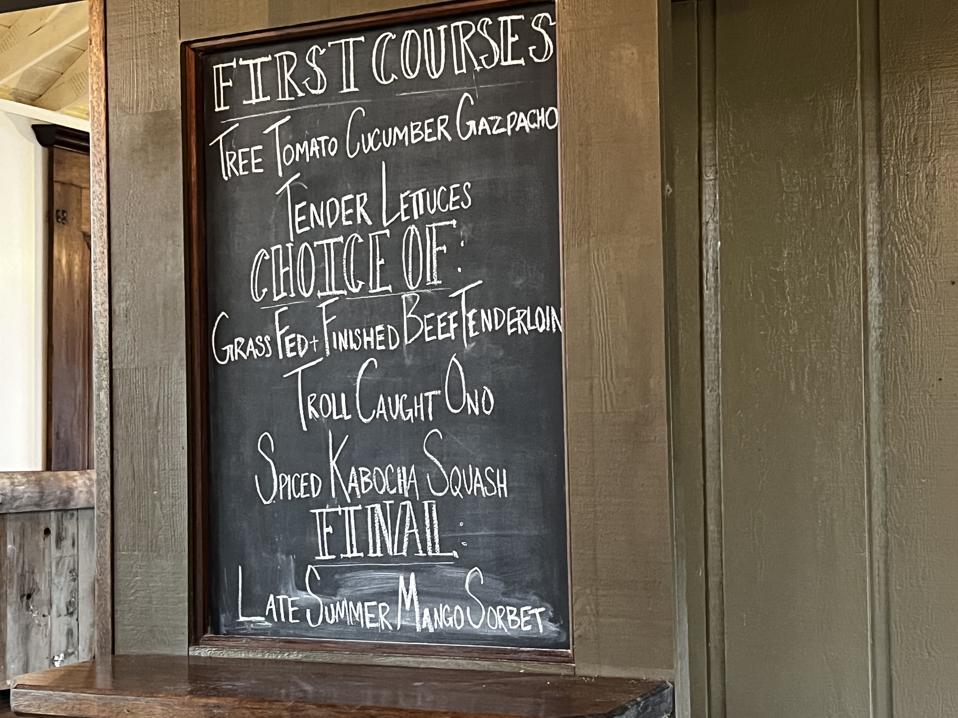 FIRST COURSES
TREE TOMATO CUCUMBER GAZPACHO
TENDER LETTUCES
CHOICE OF:
GRASS FED + FINISHED BEEF TENDERLOIN
TROLL CAUGHT ONO
SPICED KABOCHA SQUASH
FINAL:
LATE SUMMER MANGO SORBET